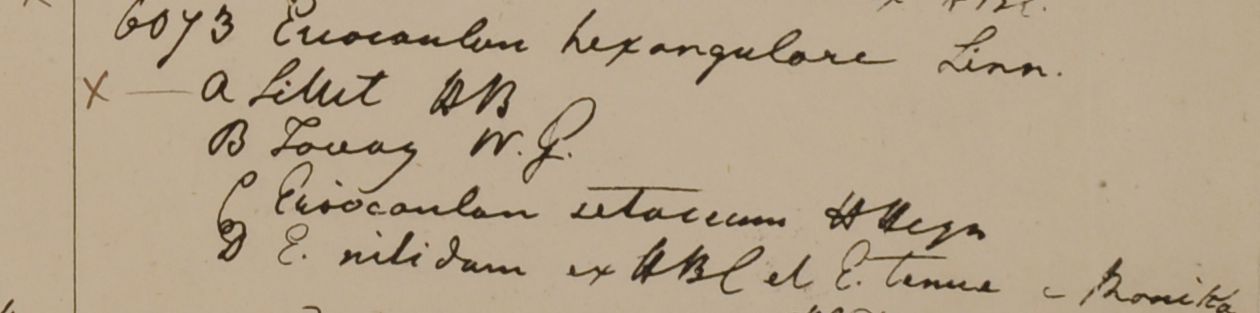 6073 Eriocaulon hexangulare Linn.
x — A Sillet HB
B Tavoy W. G.
C Eriocaulon setaceum H Heyn
D E. nitidum ex HBC et E. tenue